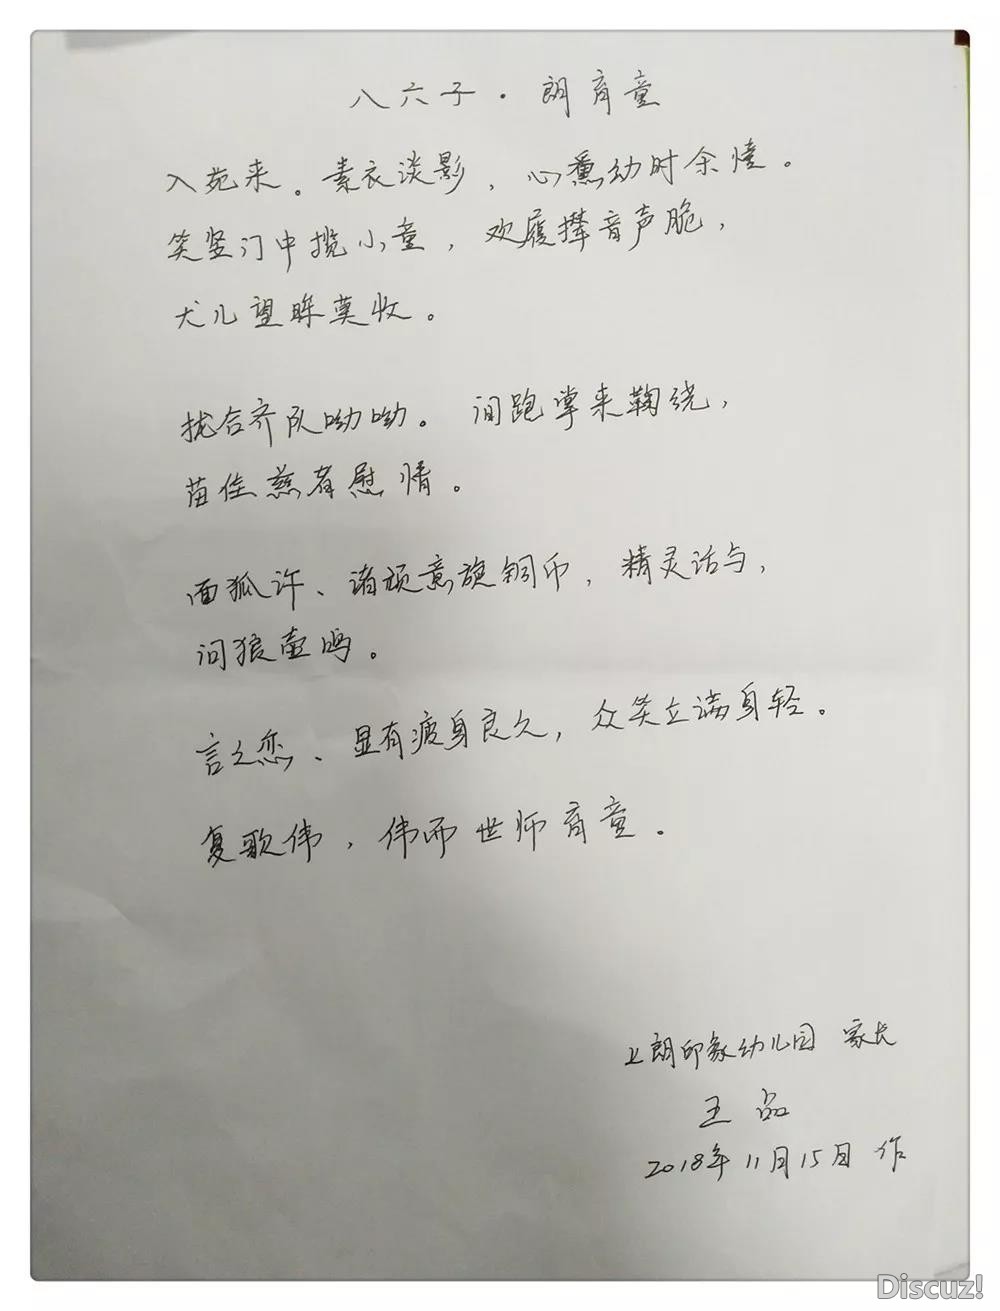 八六子·朗育童
入苑来。素衣淡影，心熏幼时余情。
笑竖门中揽小童，欢履攆音声脆，
犬儿望眸莫收。
拢合齐队呦呦。间跑掌来鞠绕，
苗佳慈有慰情。
面狐许、诸顽意旋铜币，精灵话与，
问狼壶鸣。
言之恋、显有疲身良久，众笑立端身轻。
复歌伟，伟而世师育童。
上朗印象幼儿园 家长
王品
2018年11月15日 作
Discuz!